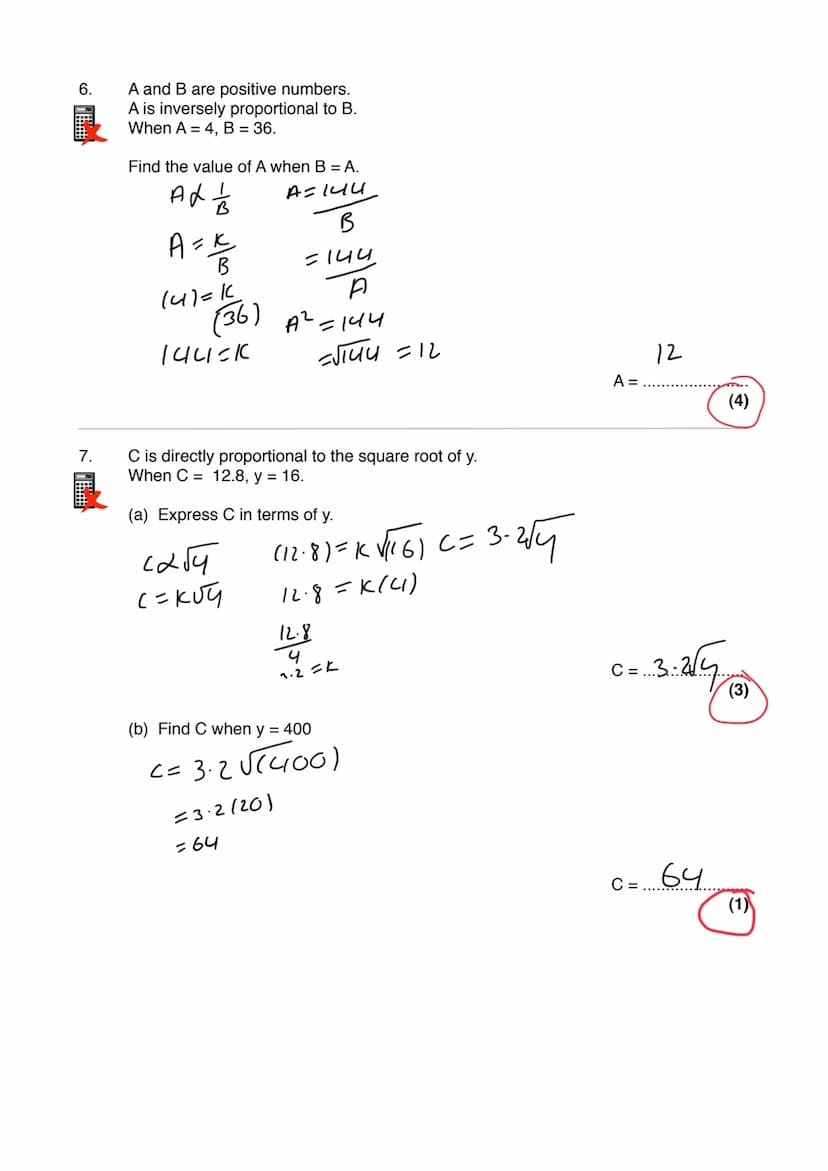 6. A and B are positive numbers.
A is inversely proportional to B.
When A = 4, B = 36.
Find the value of A when B = A.
A ∝ 1/B
A = K/B
(4) = K/(36)
144 = K
A = 144/B
= 144/A
A² = 144
= √144 = 12
12
A = ......................
(4)
7. C is directly proportional to the square root of y.
When C = 12.8, y = 16.
(a) Express C in terms of y.
C ∝ √y
C = K√y
(12.8) = K√(16)
12.8 = K(4)
12.8/4
3.2 = K
C = 3.2√y
C = ...3.2√y......
(3)
(b) Find C when y = 400
C = 3.2√(400)
= 3.2(20)
= 64
C = ....64........
(1)